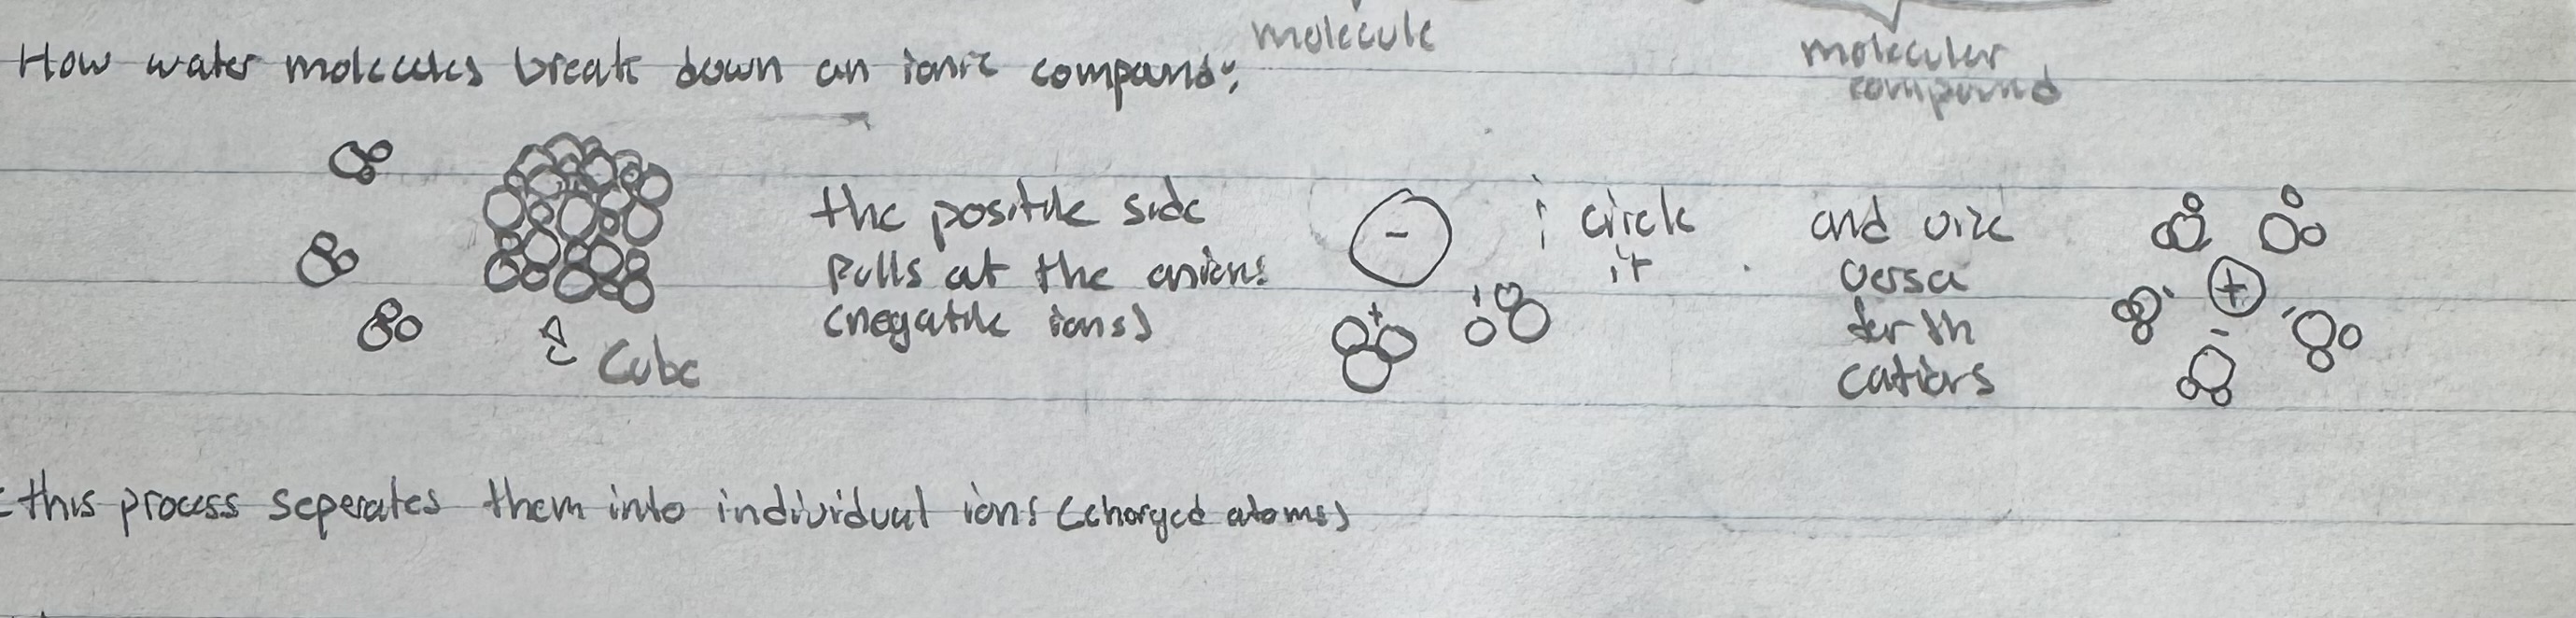 molecule
molecular
compound
How water molecules break down an ionic compound:
Cube
the positive side
pulls at the anions
(negative ions)
-
+
circle
it
and vice
versa
for th
cations
+
-
this process seperates them into individual ions (charged atoms)